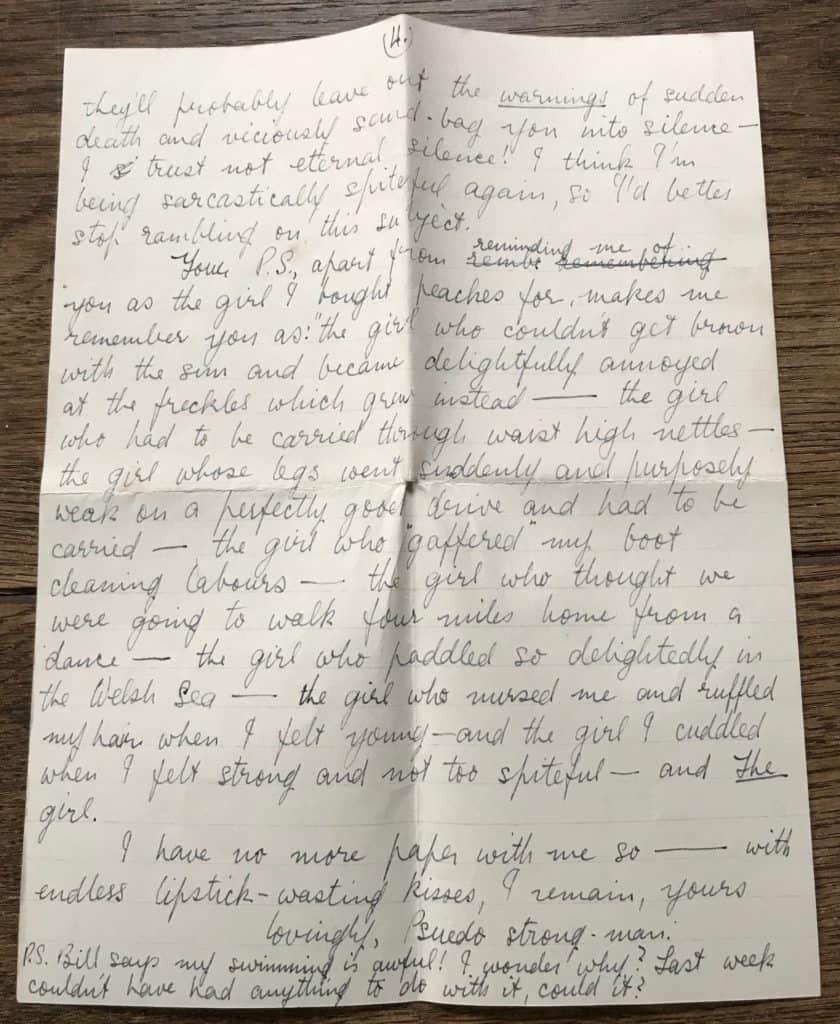 (4.)
they'll probably leave out the warnings of sudden
death and viciously sand-bag you into silence —
I trust not eternal silence! I think I'm
being sarcastically spiteful again, so I'd better
stop rambling on this subject.
Your P.S., apart from reminding me of
you as the girl I bought peaches for, makes me
remember you as: "the girl" who couldn't get brown
with the sun and became delightfully annoyed
at the freckles which grew instead — the girl
who had to be carried through waist high nettles —
the girl whose legs went suddenly and purposely
weak on a perfectly good drive and had to be
carried — the girl who "gaffered" my boot
cleaning labours — the girl who thought we
were going to walk four miles home from a
dance — the girl who paddled so delightedly in
the Welsh Sea — the girl who nursed me and ruffled
my hair when I felt young — and the girl I cuddled
when I felt strong and not too spiteful — and The
girl.
I have no more paper with me so — with
endless lipstick-wasting kisses, I remain, yours
lovingly, Psuedo strong-man.
P.S. Bill says my swimming is awful! I wonder why? Last week
couldn't have had anything to do with it, could it?